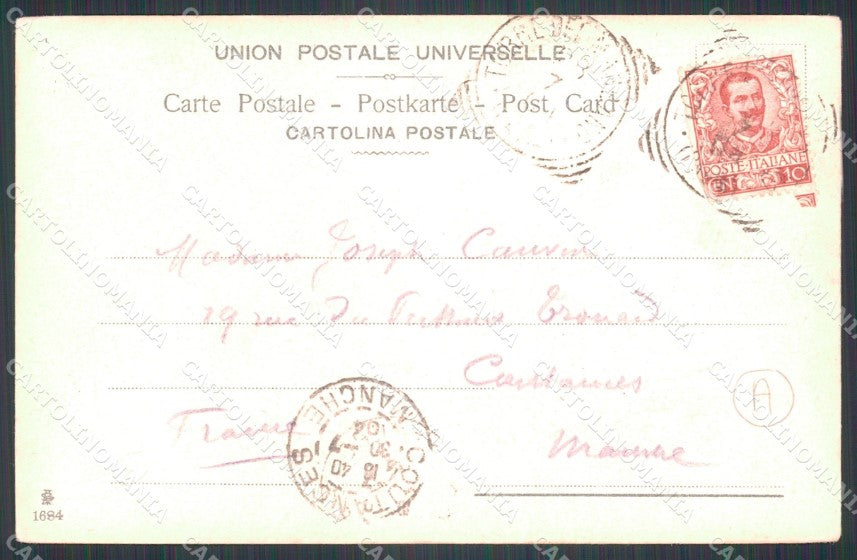 UNION POSTALE UNIVERSELLE
Carte Postale - Postkarte - Post Card
CARTOLINA POSTALE
POSTE·ITALIANE
10
Madame Joseph Cauvin
19 rue du
Coutances
France
Manche
COUTANCES MANCHE
18 40
30 -7
04
A
1684
CARTOLINOMANIA